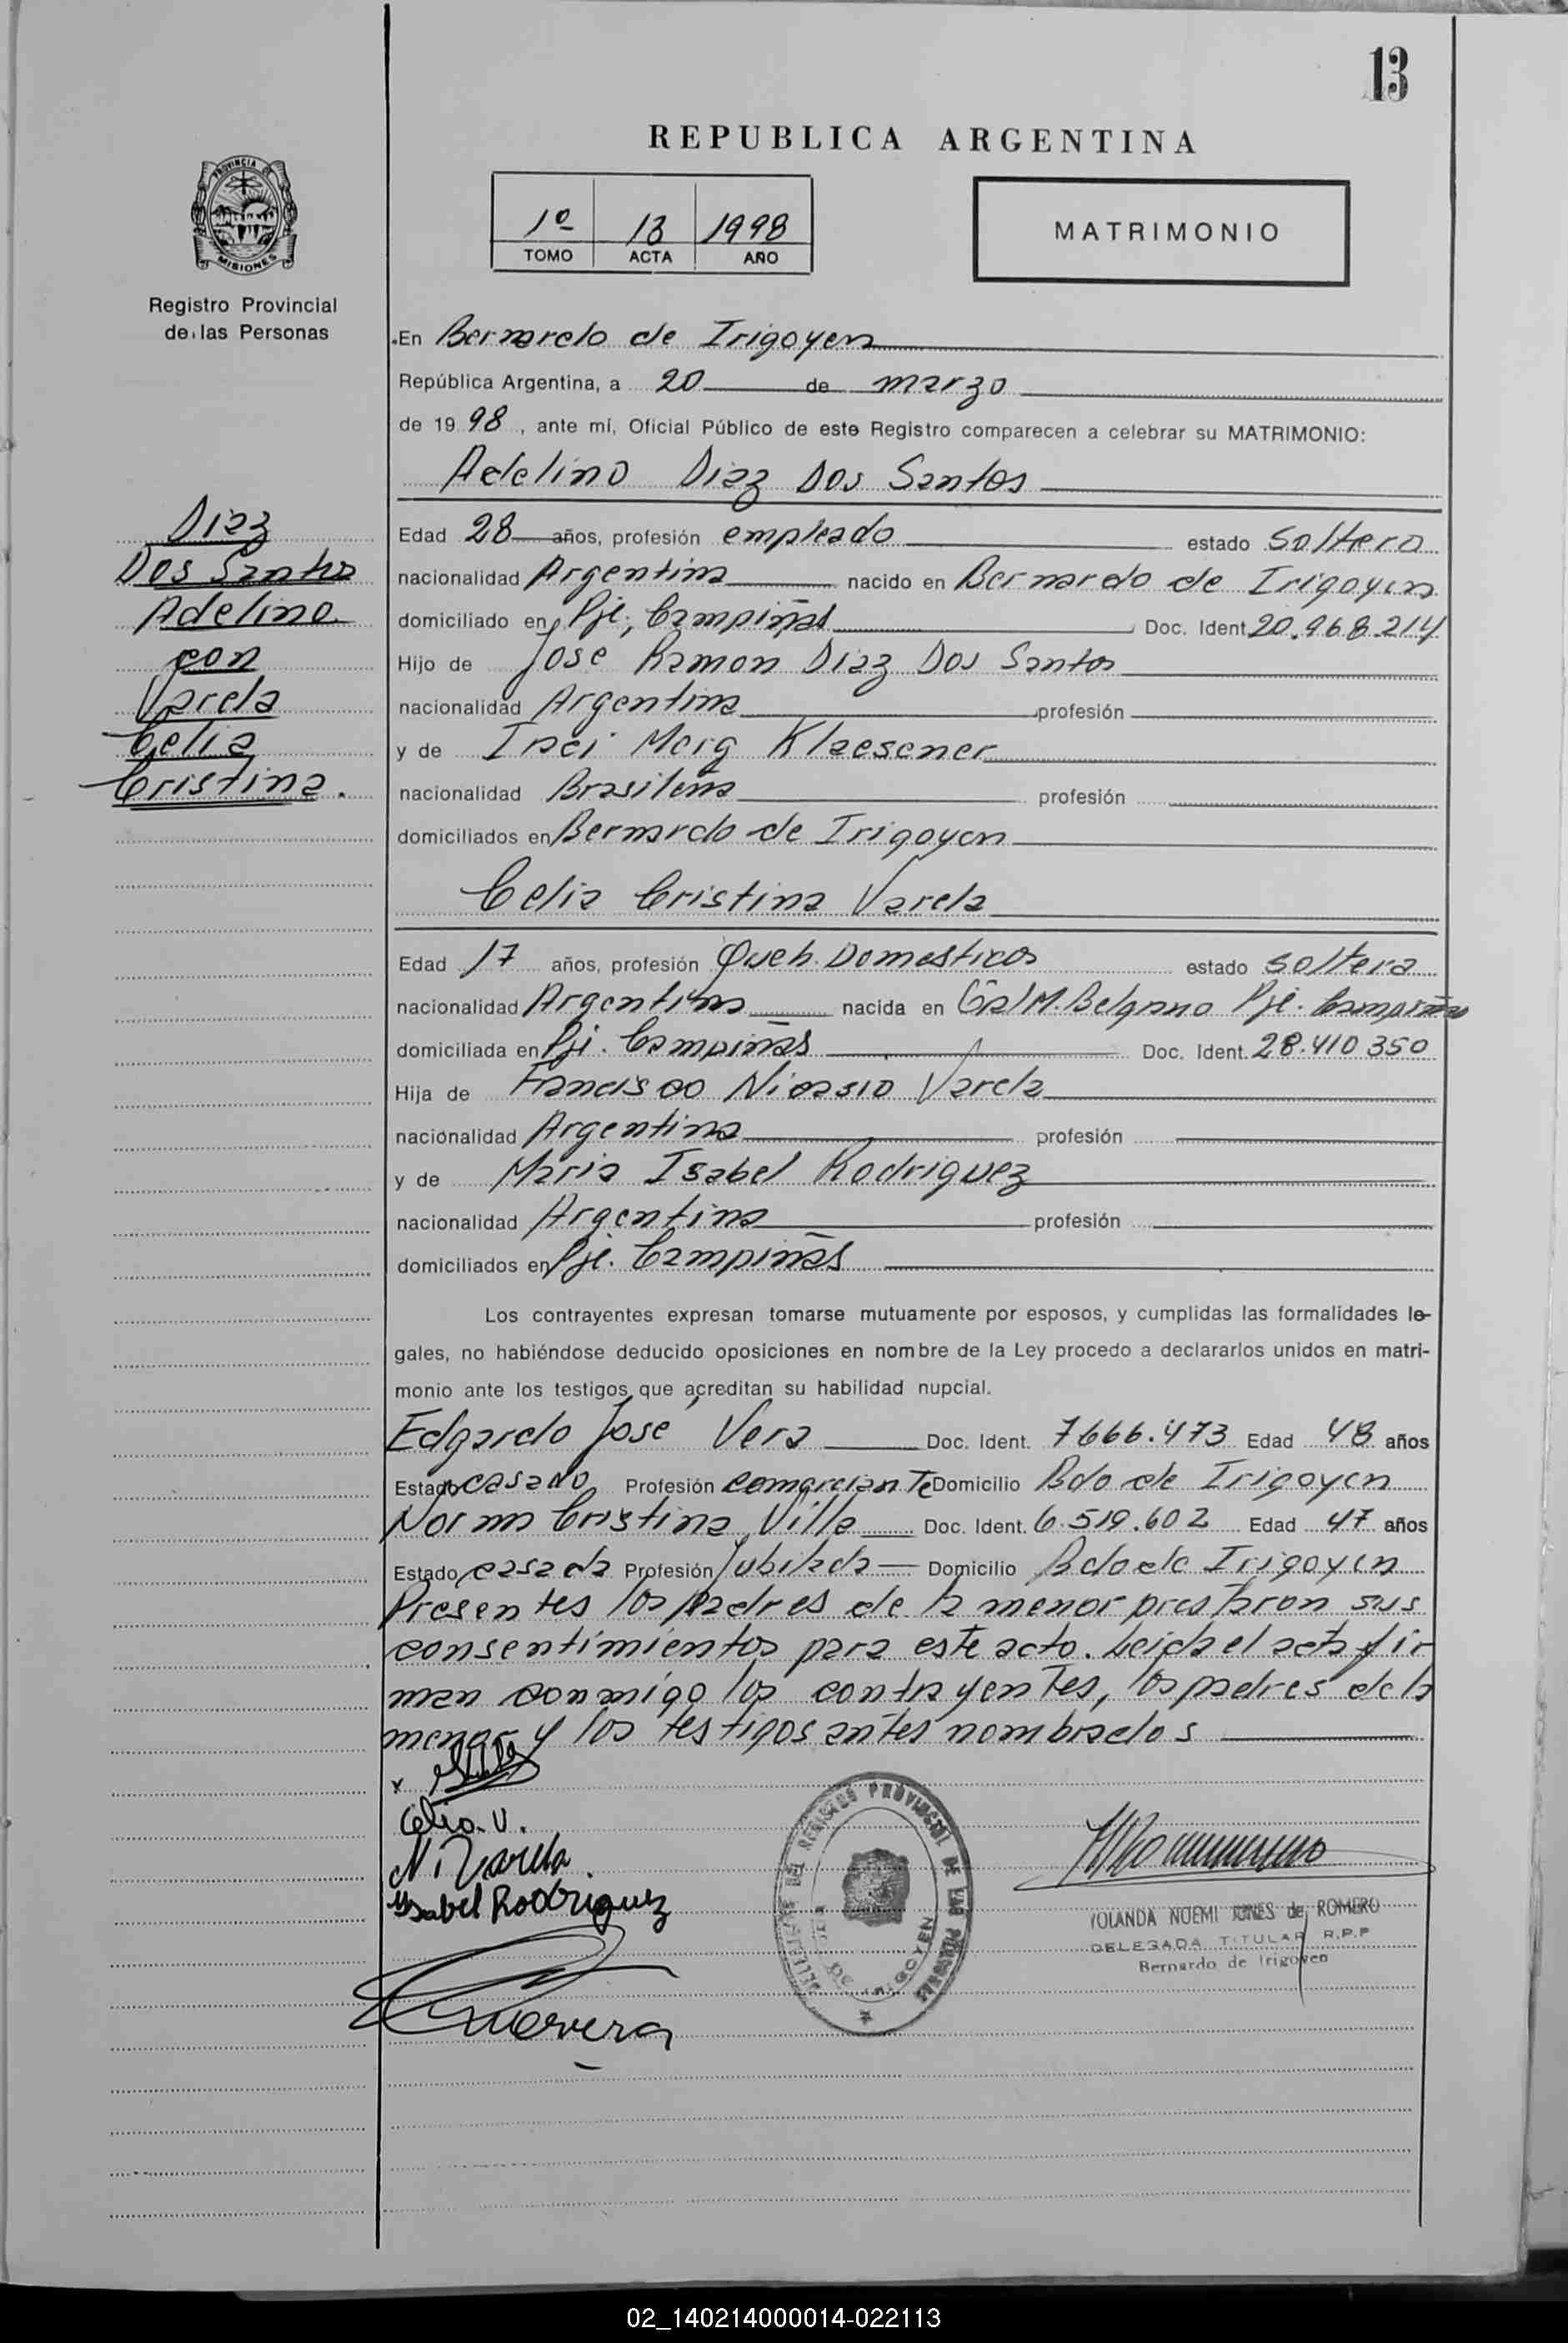 13
REPUBLICA ARGENTINA
PROVINCIA DE
MISIONES
Registro Provincial
de las Personas
1º 13 1998
TOMO ACTA AÑO
MATRIMONIO
En Bernardo de Irigoyen
República Argentina, a 20 de marzo
de 1998, ante mí, Oficial Público de este Registro comparecen a celebrar su MATRIMONIO:
Adelino Diaz Dos Santos
Diaz
Dos Santos
Adelino
con
Varela
Celia
Cristina.
Edad 28 años, profesión empleado estado soltero
nacionalidad Argentina nacido en Bernardo de Irigoyen
domiciliado en Pje. Campiñas Doc. Ident. 20.968.214
Hijo de José Ramon Diaz Dos Santos
nacionalidad Argentina profesión
y de Inei Klaesener
nacionalidad Brasileña profesión
domiciliados en Bernardo de Irigoyen
Celia Cristina Varela
Edad 17 años, profesión Queh. Domesticos estado soltera
nacionalidad Argentina nacida en Gral M. Belgrano Pje. Campiñas
domiciliada en Pje. Campiñas Doc. Ident. 28.410 350
Hija de Francisco Nicasio Varela
nacionalidad Argentina profesión
y de Maria Isabel Rodriguez
nacionalidad Argentina profesión
domiciliados en Pje. Campiñas
Los contrayentes expresan tomarse mutuamente por esposos, y cumplidas las formalidades le-
gales, no habiéndose deducido oposiciones en nombre de la Ley procedo a declararlos unidos en matri-
monio ante los testigos que acreditan su habilidad nupcial.
Edgardo José Vera Doc. Ident. 7666.473 Edad 48 años
Estado casado Profesión comerciante Domicilio Bdo de Irigoyen
Norma Cristina Villa Doc. Ident. 6.519.602 Edad 47 años
Estado casada Profesión Jubilada Domicilio Bdo de Irigoyen
Presentes los padres de la menor prestaron sus
consentimientos para este acto. Leida el acta fir
man conmigo los contrayentes, los padres de la
menor y los testigos antes nombrados
Celia. V.
N. Varela.
Ysabel Rodriguez
DELEGACION DEL REGISTRO PROVINCIAL DE LAS PERSONAS
BDO. DE IRIGOYEN
YOLANDA NOEMI JONES de ROMERO
DELEGADA TITULAR R.P.P
Bernardo de Irigoyen
02_140214000014-022113